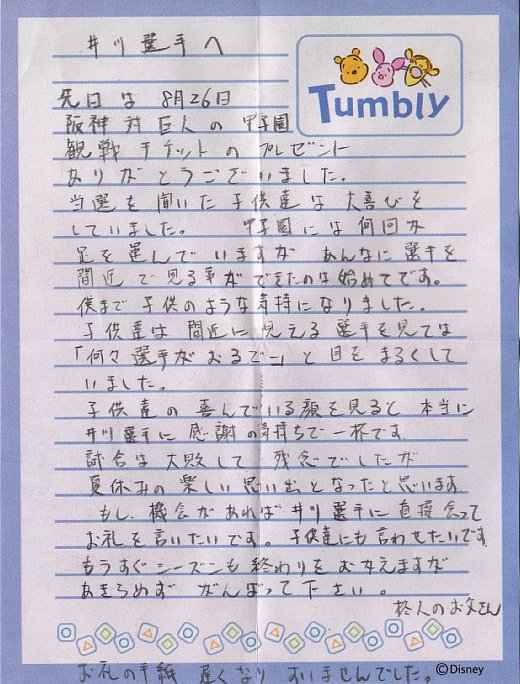 井川選手へ
Tumbly
先日は 8月26日
阪神対巨人の 甲子園
観戦チケットの プレゼント
ありがとうございました。
当選を聞いた子供達は大喜びを
していました。 甲子園には何回か
足を運んでいますが あんなに選手を
間近で見る事ができたのは始めてです。
僕まで子供のような気持になりました。
子供達は間近に見える選手を見ては
「何々選手がおるでー」と目をまるくして
いました。
子供達の喜んでいる顔を見ると本当に
井川選手に感謝の気持ちで一杯です
試合は大敗して 残念でしたが
夏休みの楽しい思い出となったと思います
もし、機会があれば井川選手に直接会って
お礼を言いたいです。子供達にも言わせたいです。
もうすぐシーズンも終わりをむかえますが
あきらめず がんばって下さい。
柊人のお父さん
お礼の手紙 遅くなり すいませんでした。
©Disney